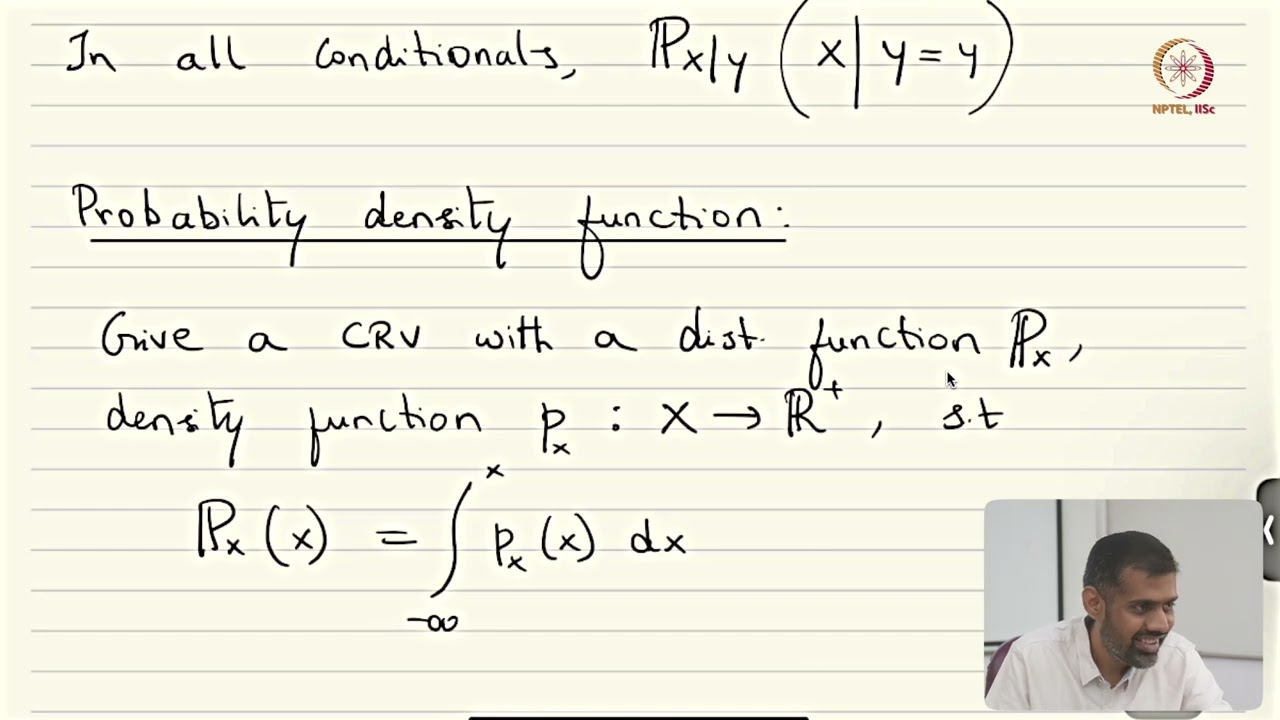 In all conditionals, ℙx|y (x | y = y)
NPTEL, IISc
Probability density function:
Give a CRV with a dist. function ℙx,
density function px : X → ℝ⁺, s.t
ℙx(x) = ∫_{-∞}^{x} px(x) dx